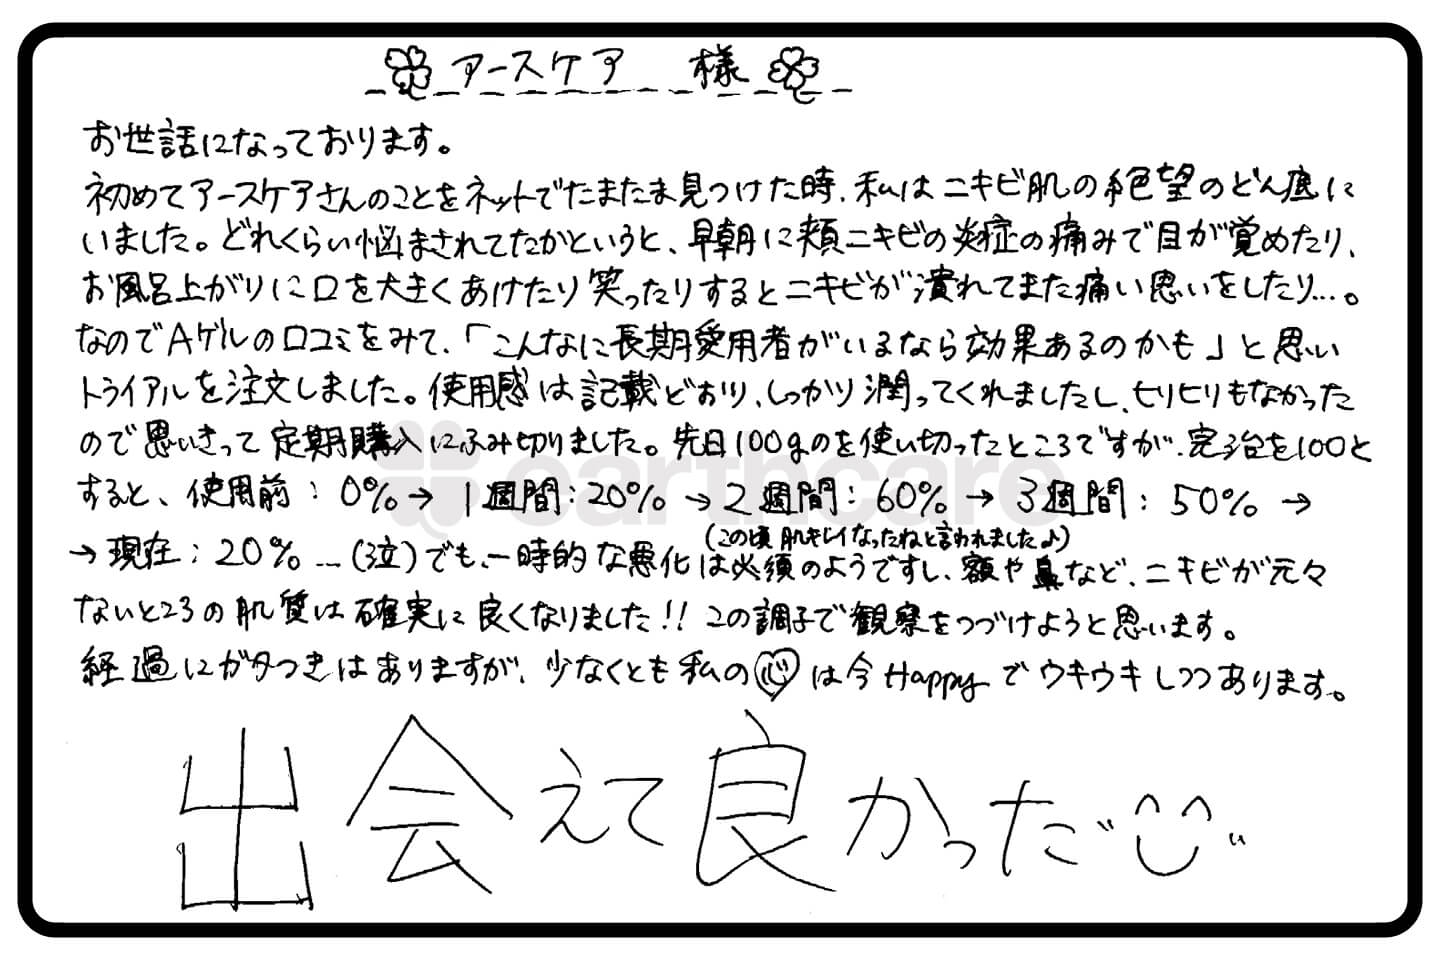 アースケア 様
お世話になっております。
初めてアースケアさんのことをネットでたまたま見つけた時、私はニキビ肌の絶望のどん底に
いました。どれくらい悩まされてたかというと、早朝に頬ニキビの炎症の痛みで目が覚めたり、
お風呂上がりに口を大きくあけたり笑ったりするとニキビが潰れてまた痛い思いをしたり…。
なのでAゲルの口コミをみて、「こんなに長期愛用者がいるなら効果あるのかも」と思い
トライアルを注文しました。使用感は記載どおり、しっかり潤ってくれましたし、ヒリヒリもなかった
ので思いきって定期購入にふみ切りました。先日100gのを使い切ったところですが、完治を100と
すると、使用前：0%→ 1週間：20% →2週間：60% → 3週間：50% →
(この頃肌キレイなったねと言われました♪)
→現在：20% …(泣)でも、一時的な悪化は必須のようですし、額や鼻など、ニキビが元々
ないところの肌質は確実に良くなりました!! この調子で観察をつづけようと思います。
経過にガタつきはありますが、少なくとも私の心は今Happyでウキウキしつつあります。
出会えて良かった
earthcare